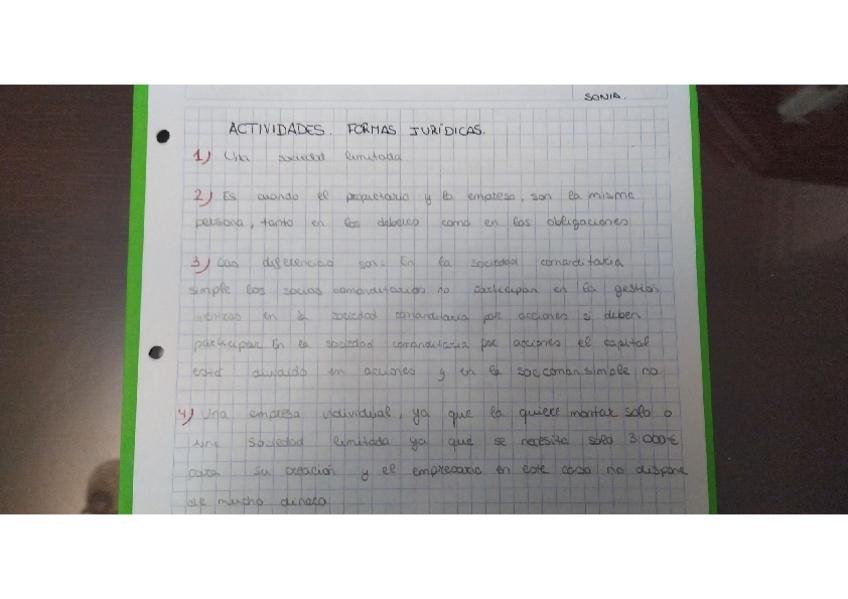 SONIA.
ACTIVIDADES. FORMAS JURÍDICAS.
1) Una sociedad limitada
2) Es cuando el propietario y la empresa, son la misma
persona, tanto en los deberes como en las obligaciones
3) Las diferencias son: En la sociedad comanditaria
simple los socios comanditarios no participan en la gestión
mientras en la sociedad comanditaria por acciones si deben
participar. En la sociedad comanditaria por acciones el capital
está dividido en acciones y en la soc.coman.simple no
4) Una empresa individual, ya que la quiere montar solo o
una sociedad limitada ya que se necesita solo 3.000€
para su creación y el empresario en este caso no dispone
de mucho dinero